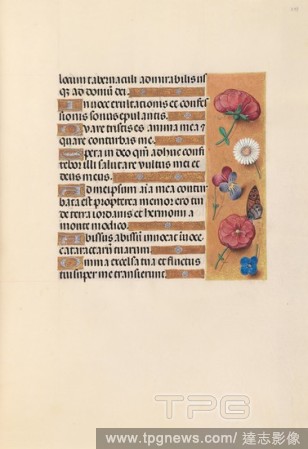 locum tabernaculi admirabilis us
qz ad domū dei.
In voce exultationis et confes
sionis sonus epulantis.
Quare tristis es anima mea?
quare conturbas me.
Spera in deo qm̄ adhuc confi
tebor illi salutare vultus mei et
deus meus.
Ad meipsum aīa mea contur
bata est propterea memor ero tui
de terra iordanis et hermonii a
monte modico.
Abissus abissū invocat in voce
cataractarū tuarum
Omnia excelsa tua et fluctus
tui super me transierunt.
TPG
www.tpgnews.com/ 達志影像